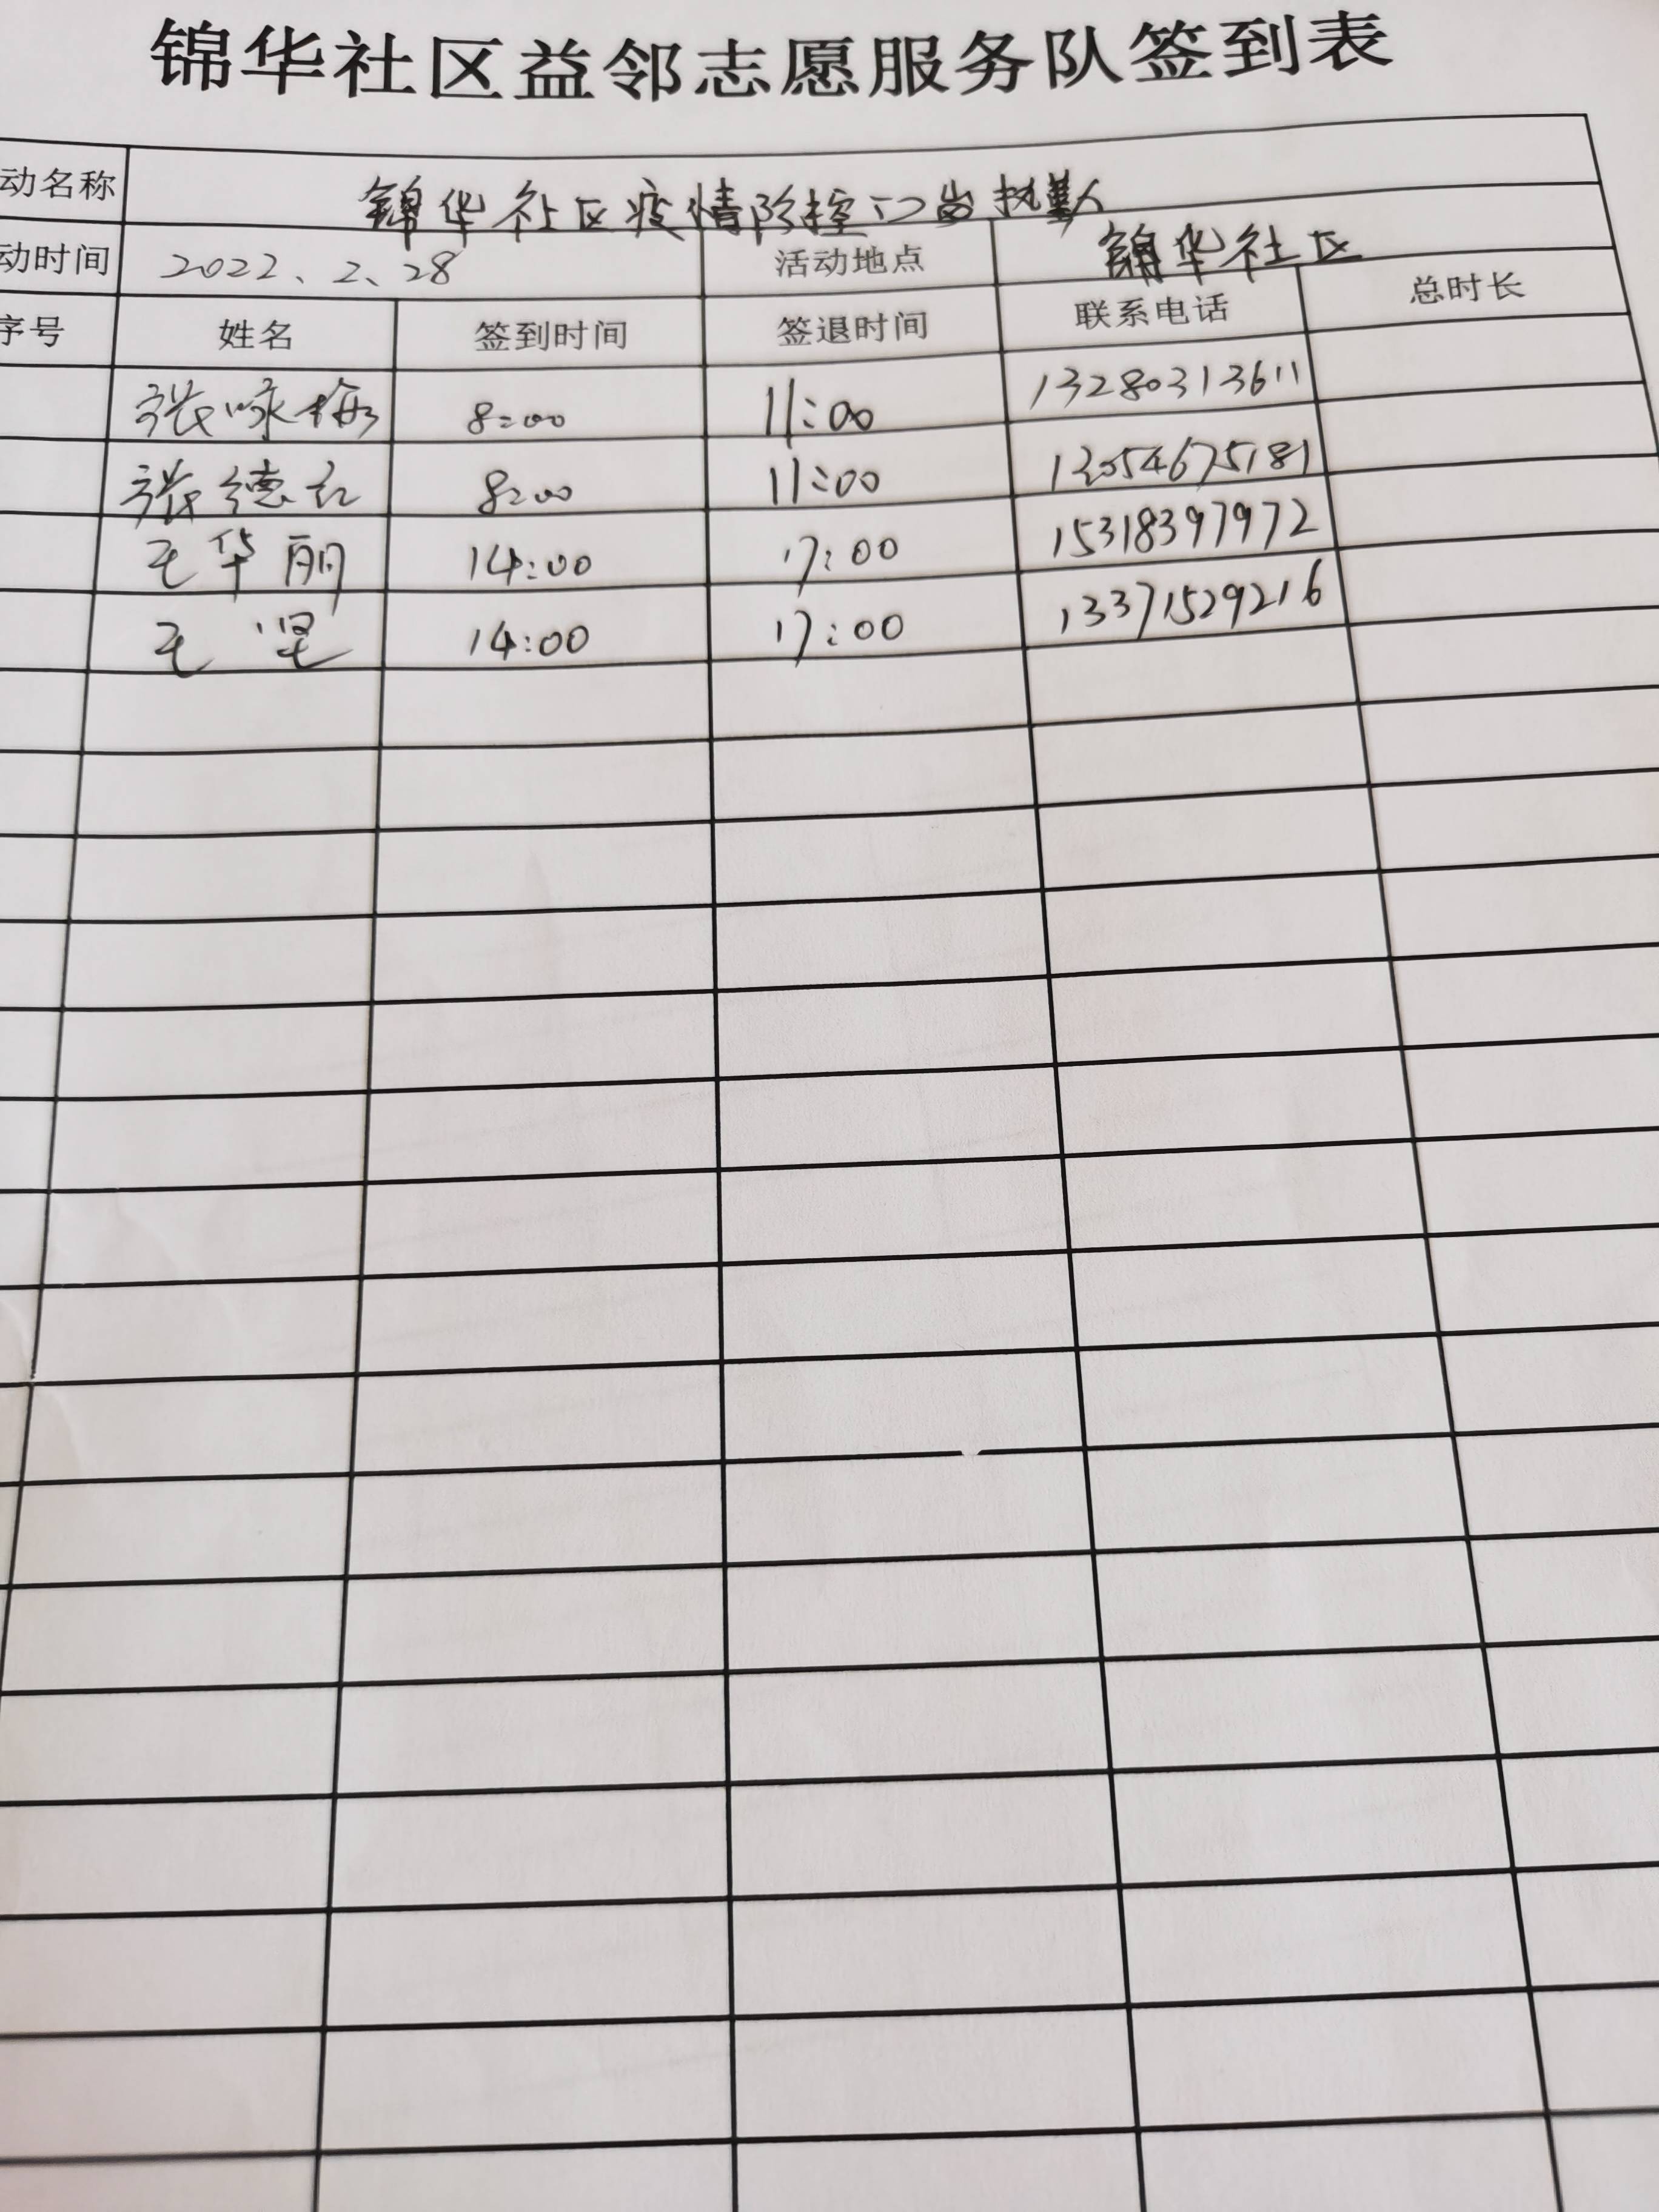 锦华社区益邻志愿服务队签到表
动名称 锦华社区疫情防控门岗执勤
动时间 2022、2、28 活动地点 锦华社区
序号 姓名 签到时间 签退时间 联系电话 总时长
张咏梅 8:00 11:00 13280313611
张德红 8:00 11:00 13054675181
毛华丽 14:00 17:00 15318397972
毛坚 14:00 17:00 13371529216